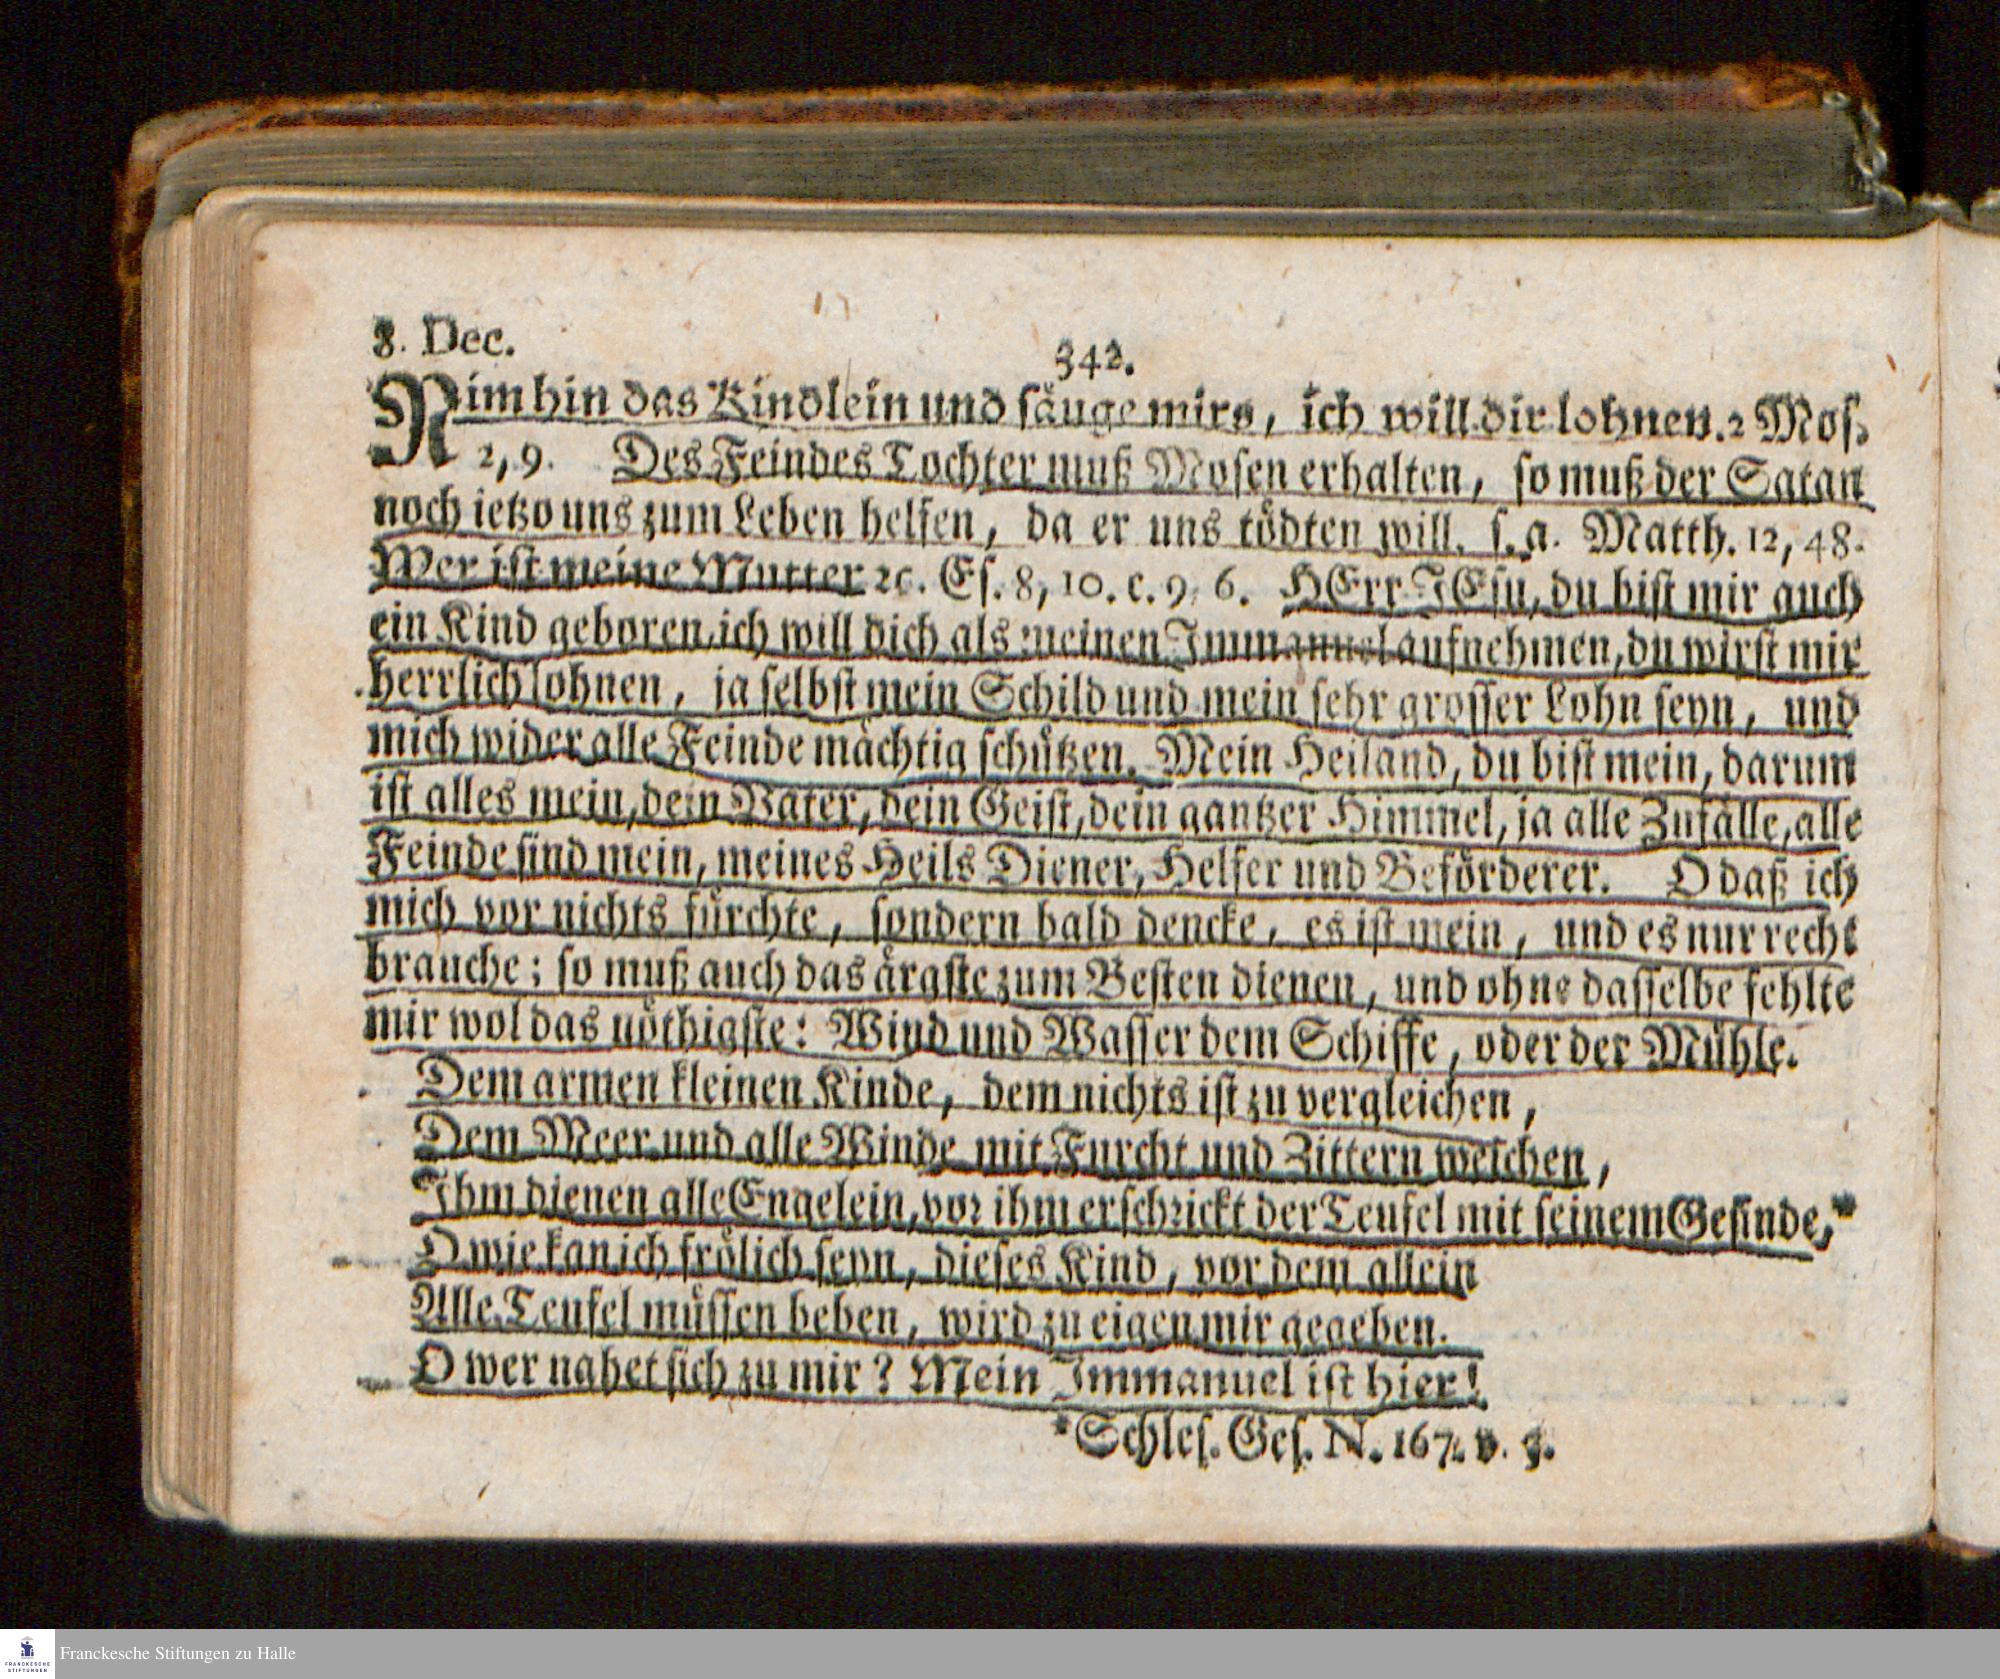 8. Dec.
342.
Nim hin das Kindlein und säuge mirs, ich will dir lohnen. 2 Mos.
2, 9. Des Feindes Tochter muß Mosen erhalten, so muß der Satan
noch ietzo uns zum Leben helfen, da er uns tödten will. s. a. Matth. 12, 48.
Wer ist meine Mutter ꝛc. Es. 8, 10. c. 9, 6. HErr JEsu, du bist mir auch
ein Kind geboren, ich will dich als meinen Immanuel aufnehmen, du wirst mir
herrlich lohnen, ja selbst mein Schild und mein sehr grosser Lohn seyn, und
mich wider alle Feinde mächtig schützen. Mein Heiland, du bist mein, darum
ist alles mein, dein Vater, dein Geist, dein gantzer Himmel, ja alle Zufälle, alle
Feinde sind mein, meines Heils Diener, Helfer und Beförderer. O daß ich
mich vor nichts fürchte, sondern bald dencke, es ist mein, und es nur recht
brauche; so muß auch das ärgste zum Besten dienen, und ohne dasselbe fehlte
mir wol das nöthigste: Wind und Wasser dem Schiffe, oder der Mühle.
Dem armen kleinen Kinde, dem nichts ist zu vergleichen,
Dem Meer und alle Winde mit Furcht und Zittern weichen,
Ihm dienen alle Engelein, vor ihm erschrickt der Teufel mit seinem Gesinde,*
O wie kan ich frölich seyn, dieses Kind, vor dem allein
Alle Teufel müssen beben, wird zu eigen mir gegeben.
O wer nahet sich zu mir? Mein Immanuel ist hier!
*Schles. Ges. N. 167. v.
Franckesche Stiftungen zu Halle
FRANCKESCHE
STIFTUNGEN